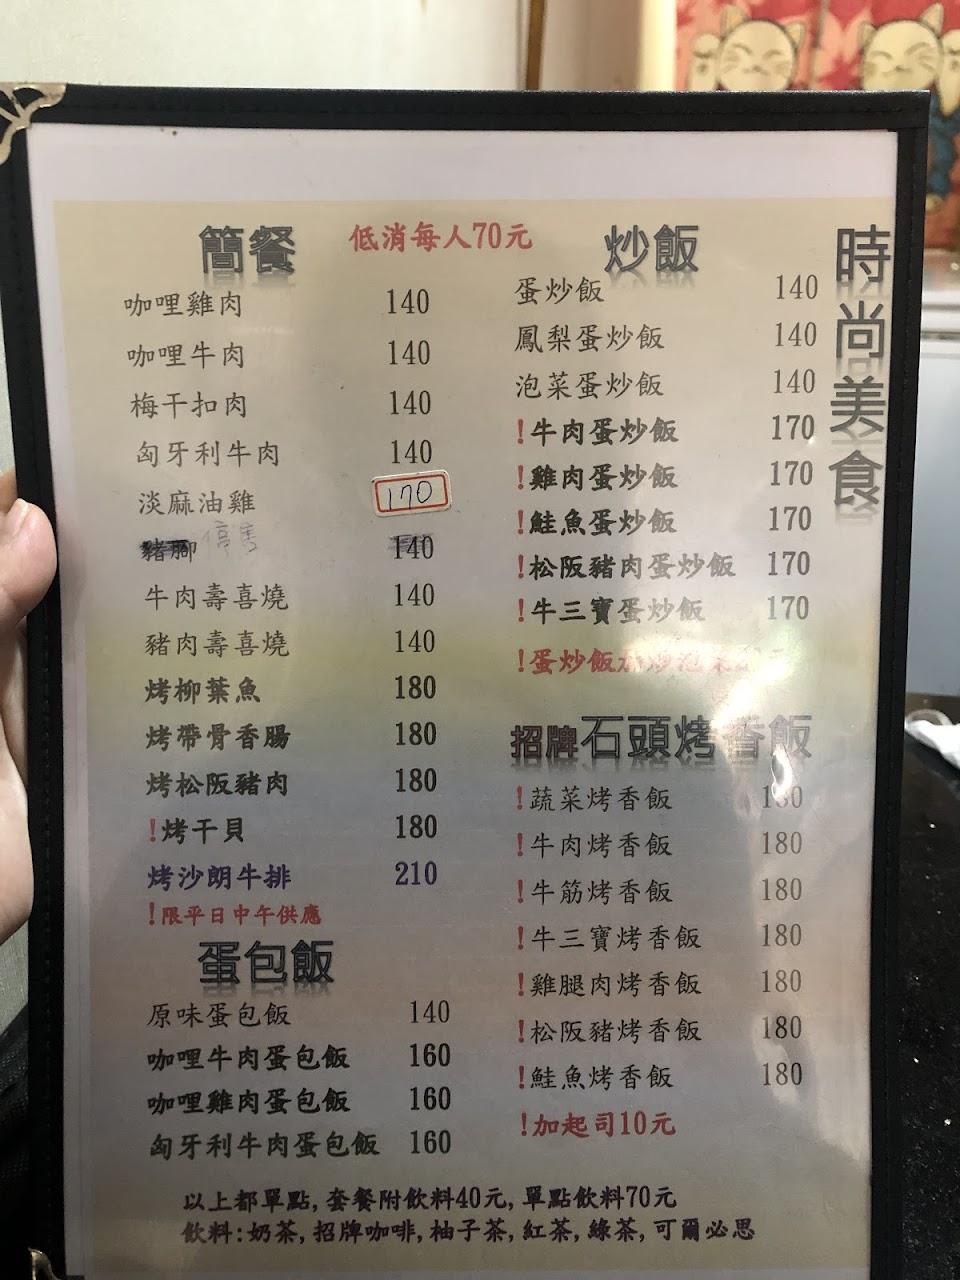 時尚美食
簡餐 低消每人70元
咖哩雞肉 140
咖哩牛肉 140
梅干扣肉 140
匈牙利牛肉 140
淡麻油雞 170
豬腳 停售 140
牛肉壽喜燒 140
豬肉壽喜燒 140
烤柳葉魚 180
烤帶骨香腸 180
烤松阪豬肉 180
!烤干貝 180
烤沙朗牛排 210
!限平日中午供應
蛋包飯
原味蛋包飯 140
咖哩牛肉蛋包飯 160
咖哩雞肉蛋包飯 160
匈牙利牛肉蛋包飯 160
炒飯
蛋炒飯 140
鳳梨蛋炒飯 140
泡菜蛋炒飯 140
!牛肉蛋炒飯 170
!雞肉蛋炒飯 170
!鮭魚蛋炒飯 170
!松阪豬肉蛋炒飯 170
!牛三寶蛋炒飯 170
!蛋炒飯加炒泡菜
招牌石頭烤香飯
!蔬菜烤香飯
!牛肉烤香飯 180
!牛筋烤香飯 180
!牛三寶烤香飯 180
!雞腿肉烤香飯 180
!松阪豬烤香飯 180
!鮭魚烤香飯 180
!加起司10元
以上都單點,套餐附飲料40元,單點飲料70元
飲料:奶茶,招牌咖啡,柚子茶,紅茶,綠茶,可爾必思